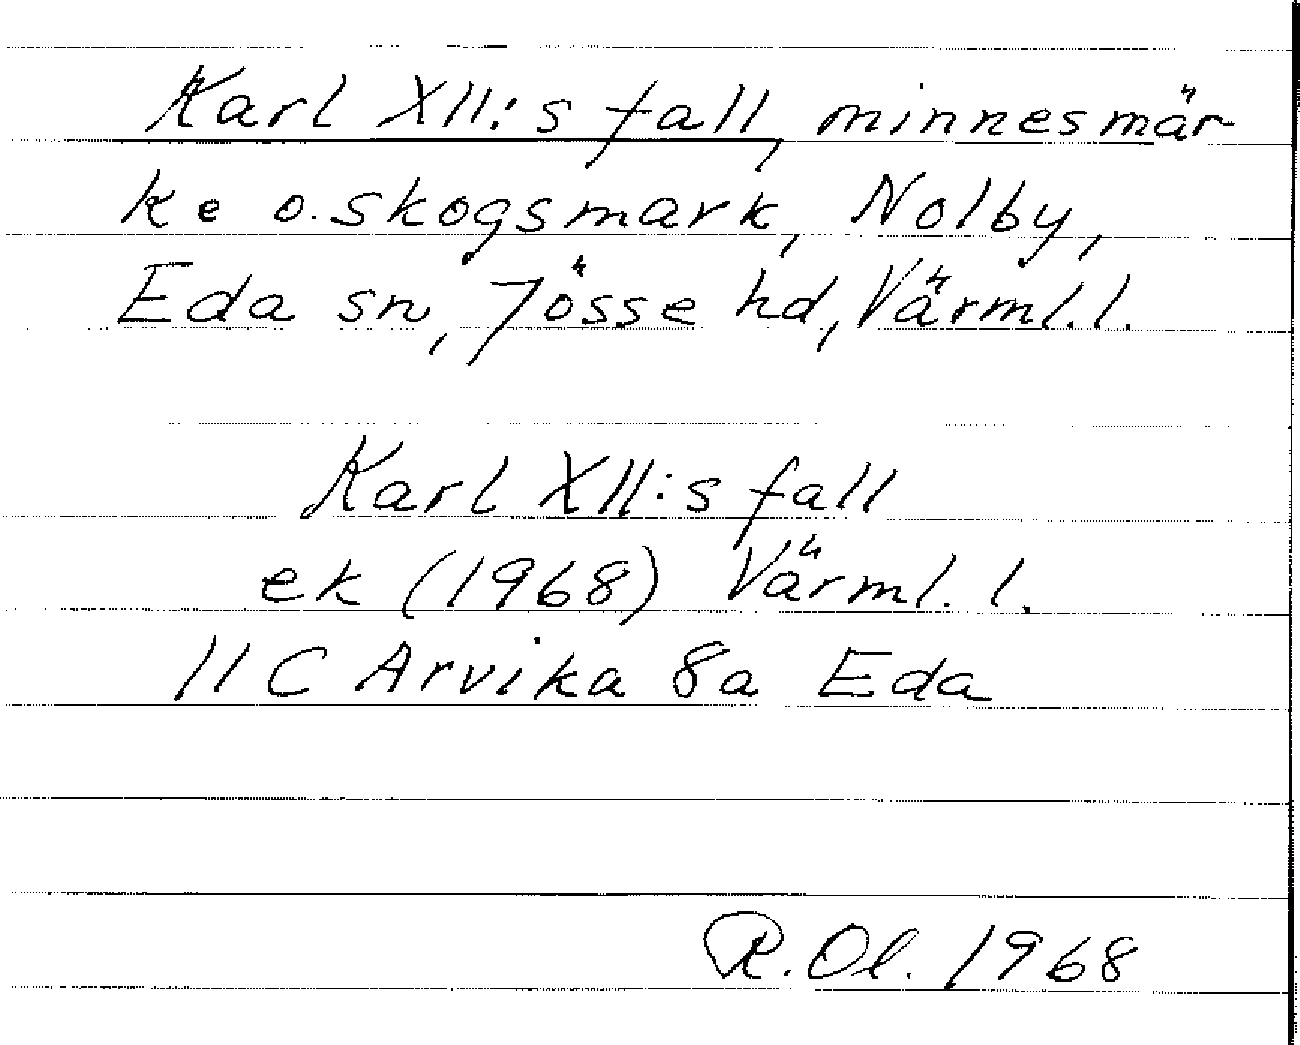 Karl XII:s fall, minnesmär
ke o. skogsmark, Nolby,
Eda sn, Jösse hd, Värml. l.
Karl XII:s fall
ek (1968) Värml. l.
11 C Arvika 8a Eda
R. Ol. 1968